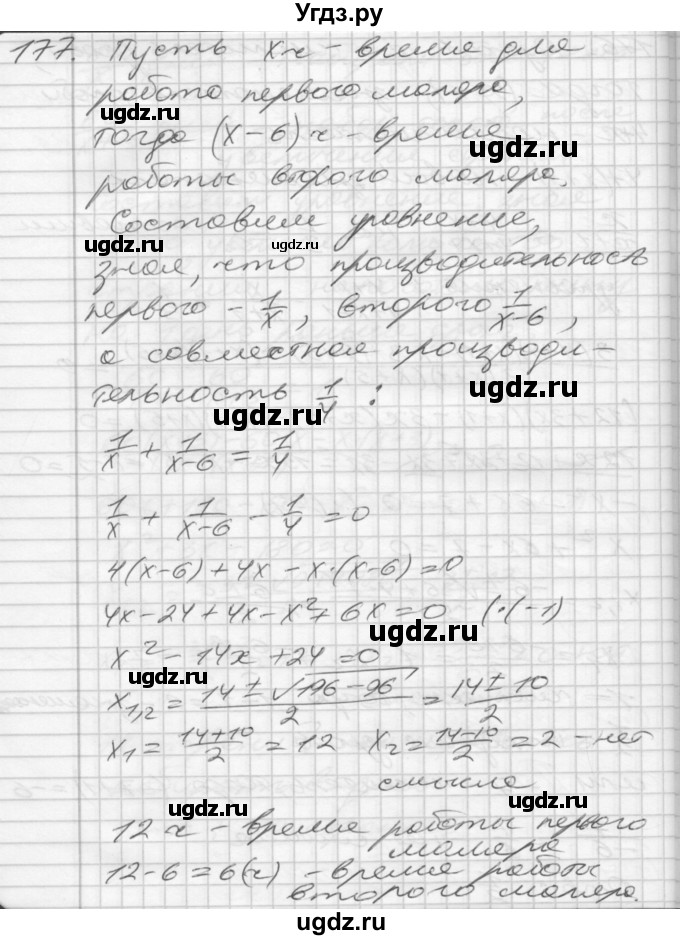 Угдз.ру
177. Пусть x ч - время для
работа первого маляра,
тогда (x-6) ч - время
работы второго маляра.
Составим уравнение,
зная, что производительность
первого - 1/x, второго 1/(x-6),
а совместная производи-
тельность 1/4 :
1/x + 1/(x-6) = 1/4
1/x + 1/(x-6) - 1/4 = 0
4(x-6) + 4x - x·(x-6) = 0
4x - 24 + 4x - x² + 6x = 0 (·(-1)
x² - 14x + 24 = 0
x1,2 = (14 ± √(196-96))/2 = (14 ± 10)/2
x1 = (14+10)/2 = 12 x2 = (14-10)/2 = 2 - нет
смысла
12 ч - время работы первого
маляра
12-6 = 6(ч) - время работы
второго маляра.
ugdz.ru
ugdz.ru
ugdz.ru
ugdz.ru
ugdz.ru
ugdz.ru
ugdz.ru
ugdz.ru
ugdz.ru
ugdz.ru
ugdz.ru
ugdz.ru
ugdz.ru
ugdz.ru